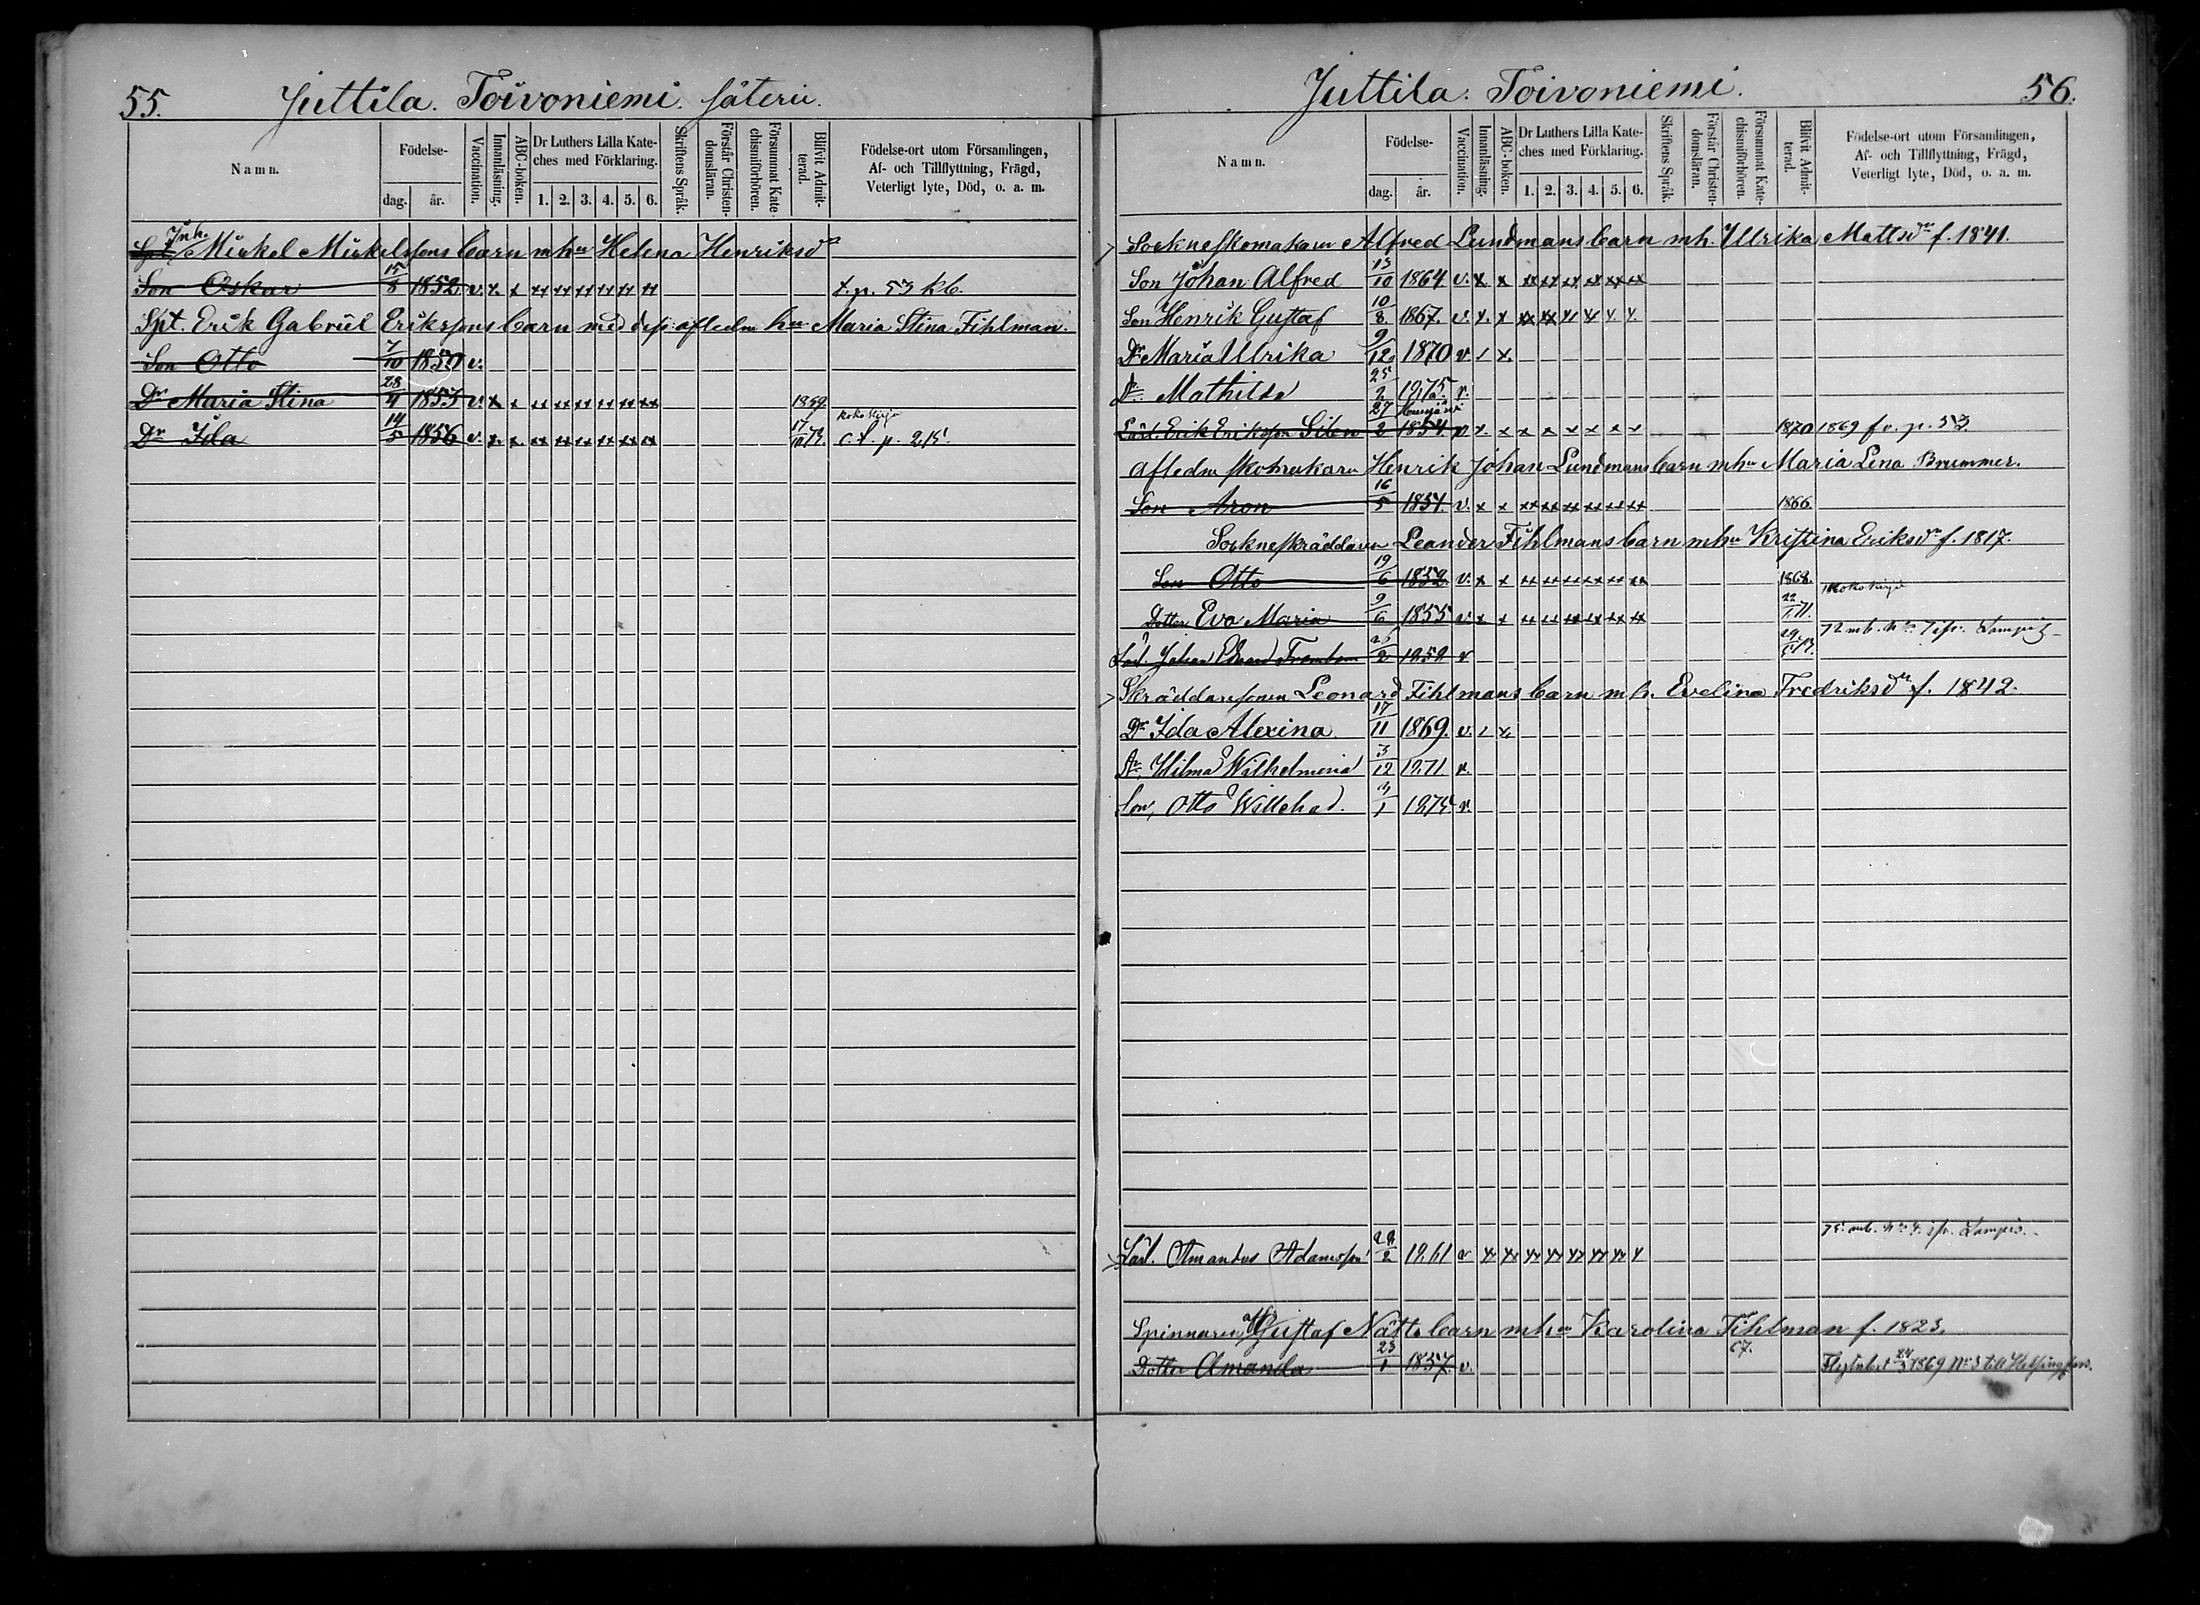 55. Juttila. Toivoniemi. säteri.
Namn. Födelse- dag. år. Vaccination. Innanläsning. ABC-boken. Dr Luthers Lilla Kateches med Förklaring. 1. 2. 3. 4. 5. 6. Skriftens Språk. Förstår Christendomsläran. Försummat Katechismiförhören. Blifvit Admitterad. Födelse-ort utom Församlingen, Af- och Tillflyttning, Frägd, Veterligt lyte, Död, o. a. m.
Inh.
Spt. Mickel Mickelssons barn mhu Helena Henriksdr
Son Oskar 15/8 1852 v. x x xx xx xx xx xx xx t. p. 53 kb.
Spt. Erik Gabriel Erikssons barn med dess afledna hu Maria Stina Fihlman.
Son Otto 7/10 1850 v.
Dr Maria Stina 28/4 1853 v. x x xx xx xx xx xx xx 1869.
Dr Ida 14/5 1856 v. x. x. xx xx xx xx xx xx koko kirja c.t. p. 215.
Juttila. Toivoniemi. 56.
Namn. Födelse- dag. år. Vaccination. Innanläsning. ABC-boken. Dr Luthers Lilla Kateches med Förklaring. 1. 2. 3. 4. 5. 6. Skriftens Språk. Förstår Christendomsläran. Försummat Katechismiförhören. Blifvit Admitterad. Födelse-ort utom Församlingen, Af- och Tillflyttning, Frägd, Veterligt lyte, Död, o. a. m.
Sockneskomakaren Alfred Lundmans barn mh. Ulrika Mattsdr f. 1841.
Son Johan Alfred 13/10 1864 v. x x xx xx xx xx xx xx
Son Henrik Gustaf 10/8 1867. v. x. x xx xx x x v. v.
Dr Maria Ulrika 9/12 1870 v / x.
Dr Mathilda 25/2 1875. v.
Lärl. Erik Eriksson Silen 27/2 1854. v x. x x x x x x 1870 1869 fr. p. 53.
Afledne skomakarn Henrik Johan Lundmans barn mhu Maria Lena Brummer.
Son Aron 16/5 1851. v. x x xx xx xx xx xx xx 1866.
Sockneskräddaren Leander Fihlmans barn mhu Kristina Eriksdr f. 1817.
Son Otto 19/6 1852. v. x x xx xx xx xx xx xx 1868.
Dotter Eva Maria 9/6 1855 v. x x xx xx xx xx xx xx 22/ 71. koko kirja
Lärl. Johan Edvard 25/2 1858 v 72 mb. No
Skräddaresonen Leonard Fihlmans barn m h. Evelina Fredriksdr f. 1842.
Dr Ida Alexina 17/11 1869. v. / x.
Dr. Hilma Wilhelmina 3/12 1871 v.
Son, Otto Willehad. 3/1 1875 v.
75. mb. No 4. ifr.
Lärl. Amandus Adamsson 28/2 1861 v xx xx xx xx xx xx xx x
Spinnaren Gustaf Nätts barn mhu Karolina Fihlman f. 1823.
Dotter Amanda 23/1 1857. v. 67. Flyttbet 24/3 1869 No 3 till Helsingfors.